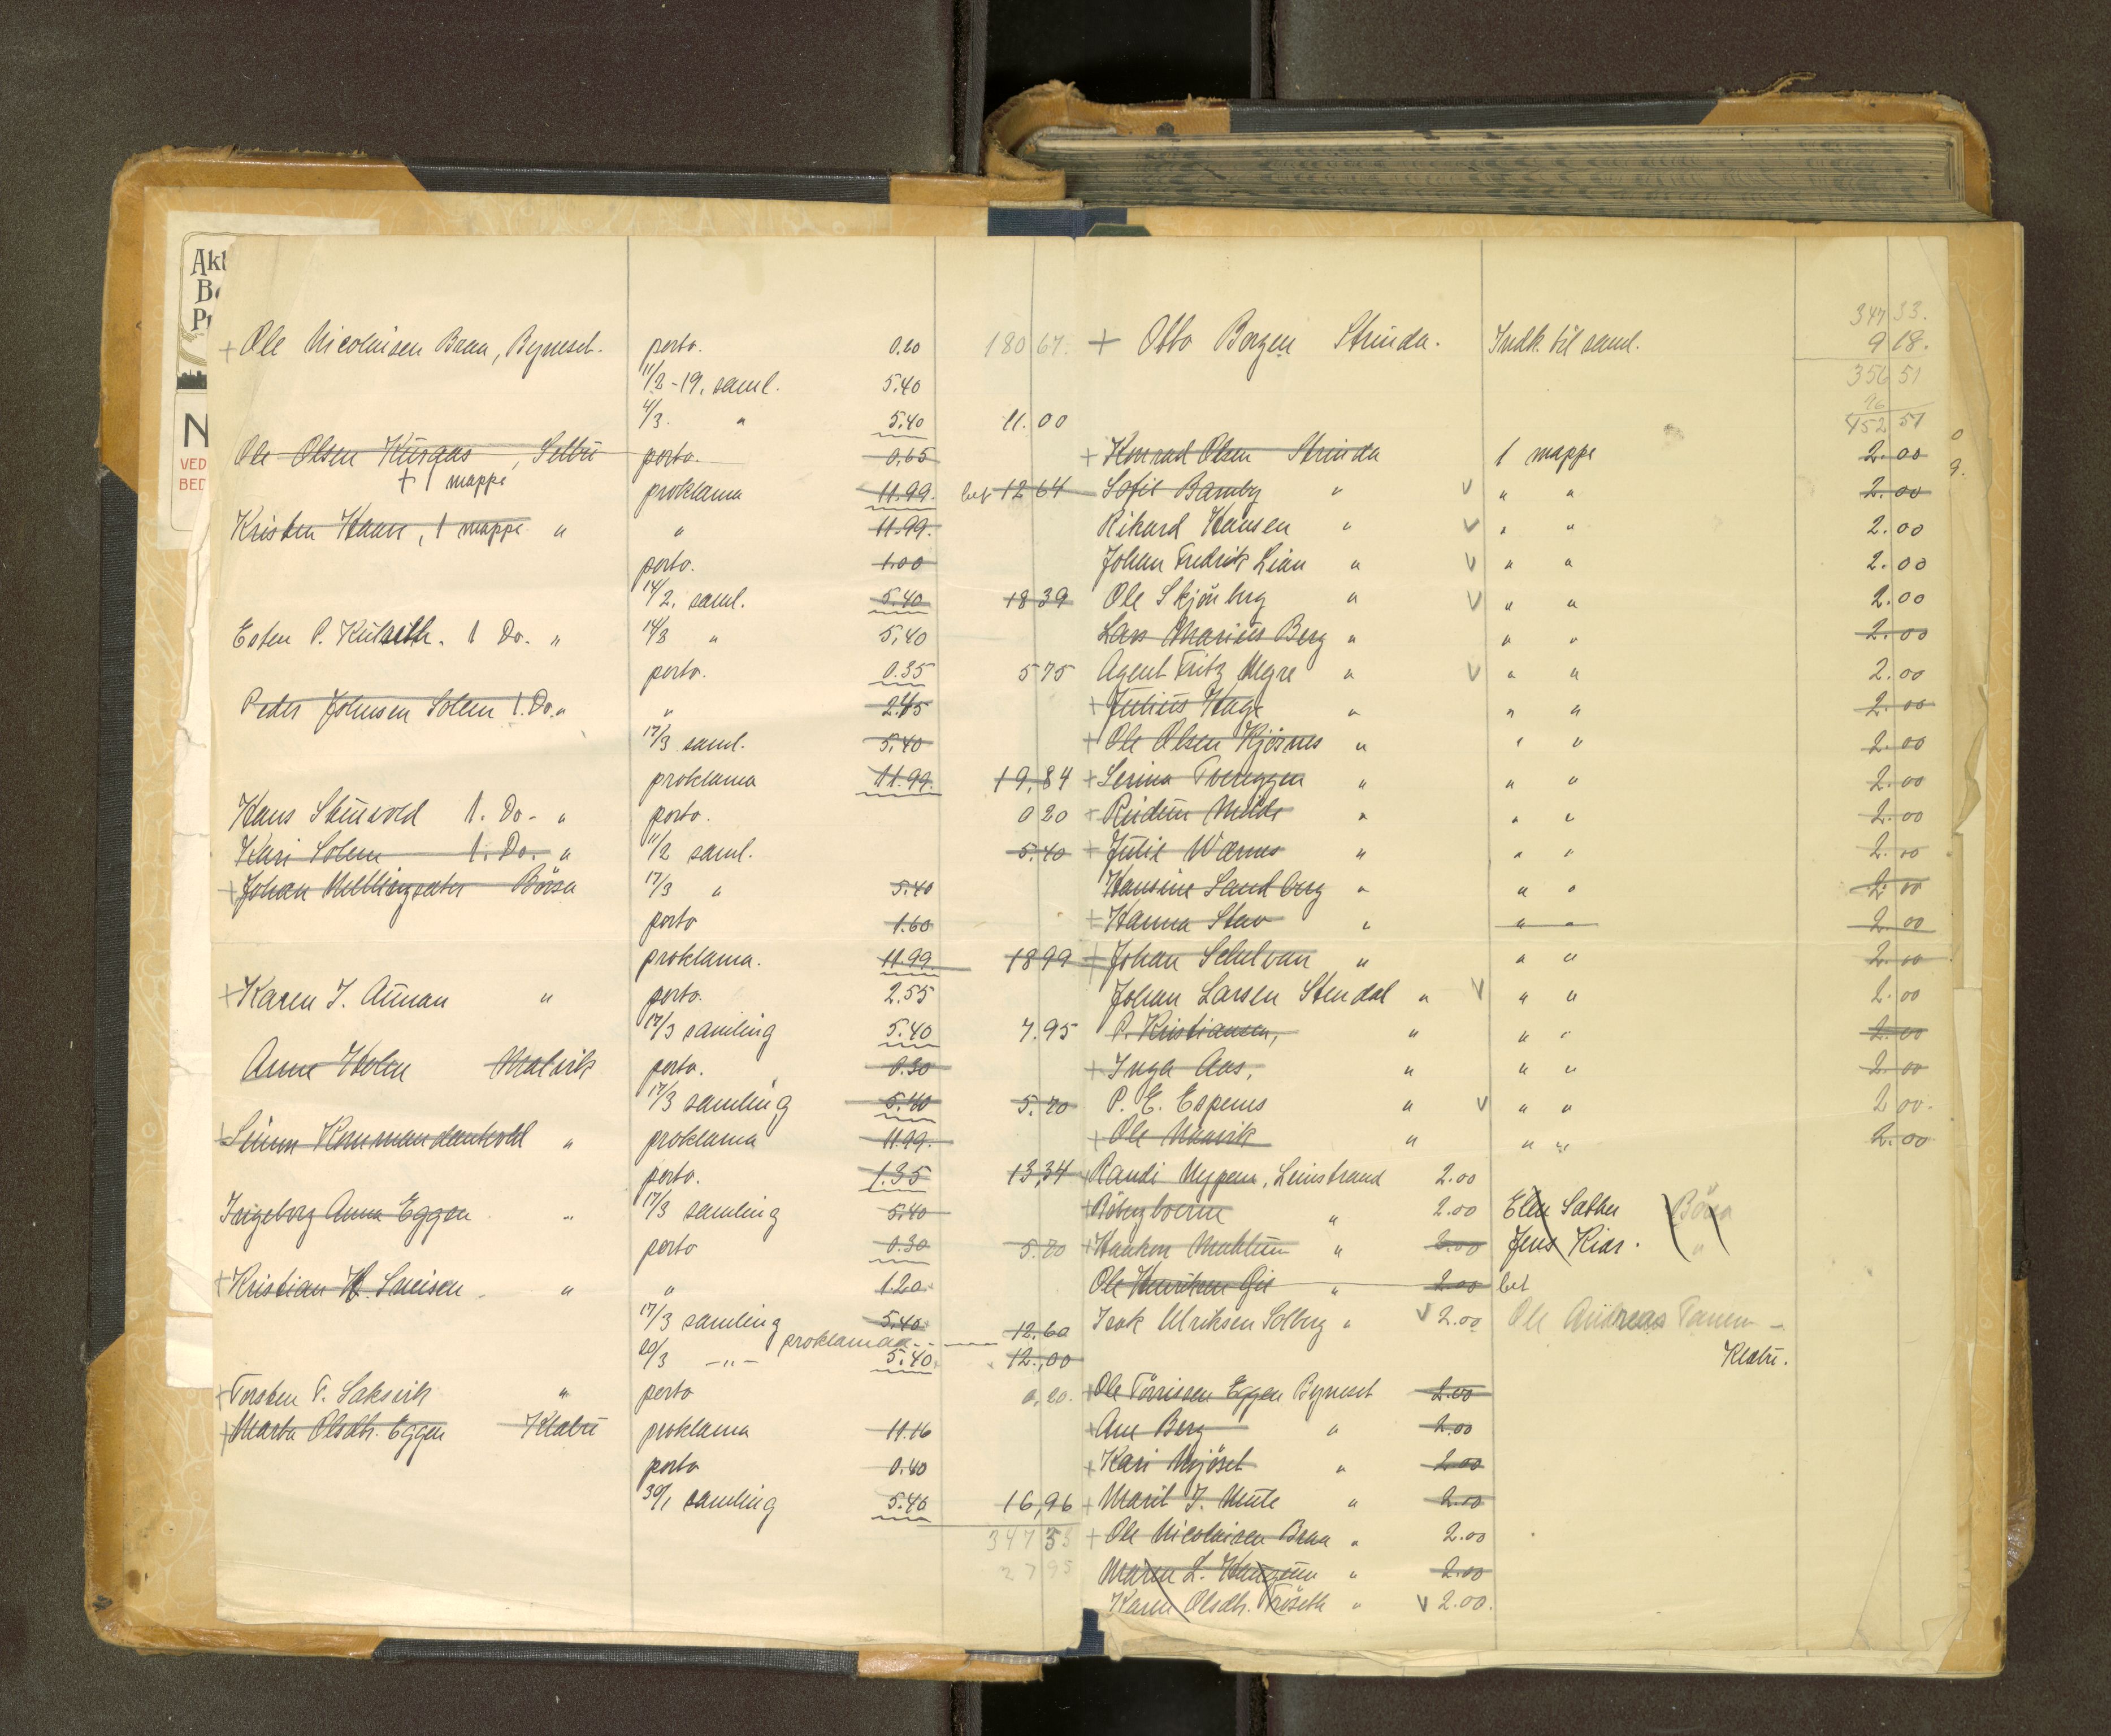 Akt
N
VED
BED
+ Ole Nicolaisen Braa, Byneset. porto. 0.20 180 67.
11/2-19. saml. 5.40
4/3. " 5.40 11.00
Ole Olsen Kusgas, Selbu porto. 0.65
+ 1 mappe proklama 11.99. bet 12 64
Kristen Haave, 1 mappe " " 11.99.
porto. 1.00
14/2. saml. 5.40 18 39
Esten P. Kulseth. 1 Do. " 14/3 " 5.40
porto. 0.35 5 75
Peder Johnsen Solem 1. Do. " " 2.45
17/3 saml. 5.40
proklama 11.99. 19,84
Hans Stuevold 1. Do - " porto. 0 20
Kari Solem 1. Do. " 11/2 saml. 5.40
+ Johan Melllingsæter Börsa 17/3 " 5.40
porto 1.60
proklama. 11.99. 18 99
+ Karen J. Aunan " porto. 2.55
17/3 samling 5.40 7.95
Anne Holm Malvik porto. 0.30
17/3 samling 5.40 5.70
+ Simon Kommandantvold " proklama 11.99.
porto. 1.35 13,34
Ingeborg Anna Eggen " 17/3 samling 5.40
porto 0.30 5.70
+ Kristian H. Sneisen " " 1.20
17/3 samling 5.40 12.60
20/3 -"- proklama 5.40 12.,00
+ Torsten T. Saksvik " porto 0,20.
+ Marta Olsdtr. Eggen Klæbu proklama 11.16
porto 0.40
30/1 samling 5.40 16,96
347 33
27 95
347 33.
+ Otto Borgen Strinda. Indk. til saml. 9 18.
356 51
96
452 51
+ Konrad Olsen Strinda 1 mappe 2.00
Sofie Bamby " V " " 2.00
Rikard Hansen " V " " 2.00
Johan Fredrik Lian " V " " 2.00
Ole Skjönberg " V " " 2.00
Lars Marius Berg " " " 2.00
Agent Fritz Megre " V " " 2.00
+ Julius Hage " " " 2.00
+ Ole Olsen Kjösnes " " " 2.00
+ Serina Tvereggen " " " 2.00
+ " " " 2.00
+ Julie Wærnes " " " 2.00
Hansine Sandberg " " " 2.00
+ Hanna Stav " " " 2.00
+ Johan Selelvan " " " 2.00
Johan Larsen Stendal " V " " 2.00
P. Kristiansen, " " " 2.00
+ Inga Aas, " " " 2.00
P. E. Espenes " V " " 2 00.
+ Ole Maavik " " " 2.00
+ Randi Nypen, Leinstrand 2.00
+ " 2.00 Elen Sæther Börsa
+ Haakon " 2.00 Jens Kiær. "
Ole Henriksen " 2.00 bet
Isak Ulriksen Solberg " V 2.00 Ole Andreas Tanem -
Klæbu.
+ Ole Törrissen Eggen Bynesset 2.00
+ Ane Berg " 2.00
+ Kari Mjöset " 2.00
+ Marit J. " 2.00
+ Ole Nicolaisen Braa " 2.00
Maren L. " 2.00
Karen Olsdtr. Fröseth " V 2.00.